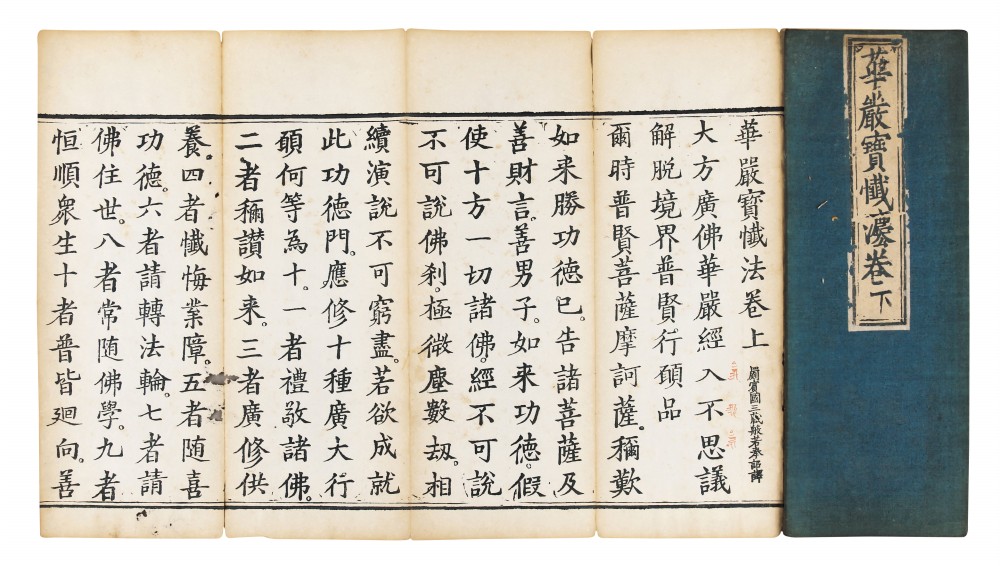 華嚴寶懺灋卷下
華嚴寶懺法卷上
罽賓國三藏般若奉詔譯
大方廣佛華嚴經入不思議
解脱境界普賢行願品
爾時普賢菩薩摩訶薩。稱歎
如来勝功德已。告諸菩薩及
善財言。善男子。如来功德。假
使十方一切諸佛。經不可說
不可說佛刹。極微塵數劫。相
續演說不可窮盡。若欲成就
此功德門。應修十種廣大行
願何等為十。一者禮敬諸佛。
二者稱讚如来。三者廣修供
養。四者懺悔業障。五者随喜
功德。六者請轉法輪。七者請
佛住世。八者常随佛學。九者
恒順衆生十者普皆廻向。善